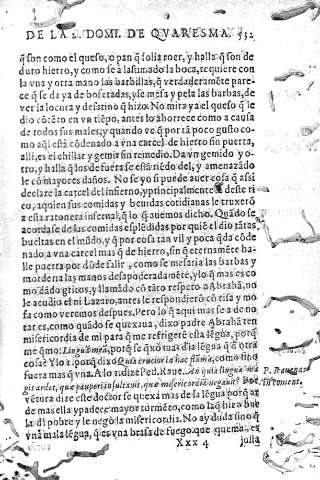 DE LA 2. DOMI. DE QVARESMA. 132
q̃ son como el queso, o pan q̃ solia roer, y halla q̃ son de
duro hierro, y como se à lastimado la boca, requiere con
la vna y otra mano las barbillas, q̃ verdaderamẽte pare-
ce q̃ se da ya de bofetadas, y se mesa y pela las barbas, de
ver la locura y desatino q̃ hizo. No mira ya el queso q̃ le
dio cõtẽto en vn tiẽpo, antes lo aborrece como a causa
de todos sus males; y quando ve q̃ por tã poco gusto co-
mo aqĩ està cõdenado a vna carcel de hierro sin puerta,
alli es el chillar y gemir sin remedio. Da vn gemido y o-
tro, y halla q̃ los de fuera se estã riẽdo del, y amenazãdo
le cõ mayores daños. No se yo si puede auer cosa q̃ assi
declare la carcel del infierno, y principalmente deste ri-
co, a quien sus comidas y beuidas cotidianas le truxerõ
a esta ratonera infernal, q̃ lo q̃ auemos dicho. Quãdo se
acorda se de las comidas esplẽdidas por quiẽ el dio tãtas
bueltas en el mũdo, y q̃ por cosa tan vil y poca q̃da cõde
nado a vna carcel mas q̃ de hierro, sin q̃ eternamẽte ha-
lle puerta por dõde salir, como se mesaria las barbas y
morderia las manos desapoderadamẽte, y lo q̃ mas es co
mo dãdo gritos, y llamãdo cõ tãto respeto a Abrahã, no
le acudio el ni Lazaro, antes le respondierõ cõ risa y mo
fa como veremos despues. Pero lo q̃ aqui mas se a de no
tar es, como quãdo se quexaua, dixo padre Abrahã ten
misericordia de mi para que me refrigere esta lẽgua, porq̃
me q̃mo: Linguã meã, porq̃ se q̃xò mas dla lẽgua q̃ d̃ otra
cosa? Y lo a. porq̃ dixo Quia crucior in hac flāma, como sino
fuera mas q̃ vna. A lo i. dize Ped. Raue. An quia lingua ma
gis ardet, quæ pauperi insultauit, quæ misericordiã negauit? Por
vẽtura dize este doctor se quexa mas de la lẽgua porq̃ ar
de mas ella y padece mayor tormẽto, como la q̃ hizo bur
la dl pobre y le negò la misericordia. No ay duda sino q̃
vna mala lẽgua, q̃ es vna brasa de fuego que quema, es
P. Rauenat.
Xxx 4
justa